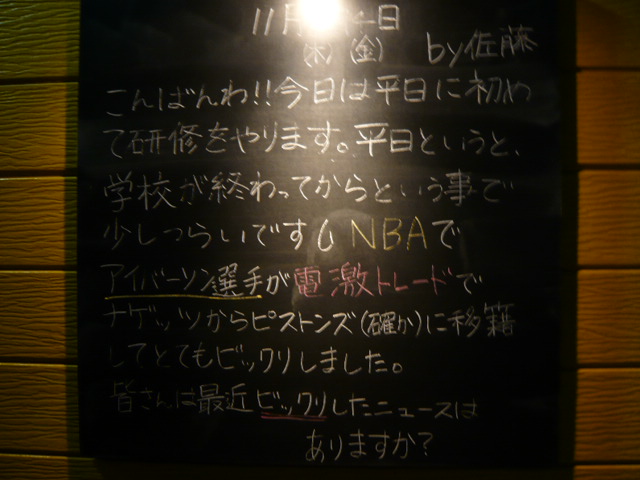 11月 4日
(木)(金) by佐藤
こんばんわ!!今日は平日に初め
て研修をやります。平日というと、
学校が終わってからという事で
少しつらいですし NBAで
アイバーソン選手が電激トレードで
ナゲッツからピストンズ(確か)に移籍
してとてもビックリしました。
皆さんは最近ビックリしたニュースは
ありますか?